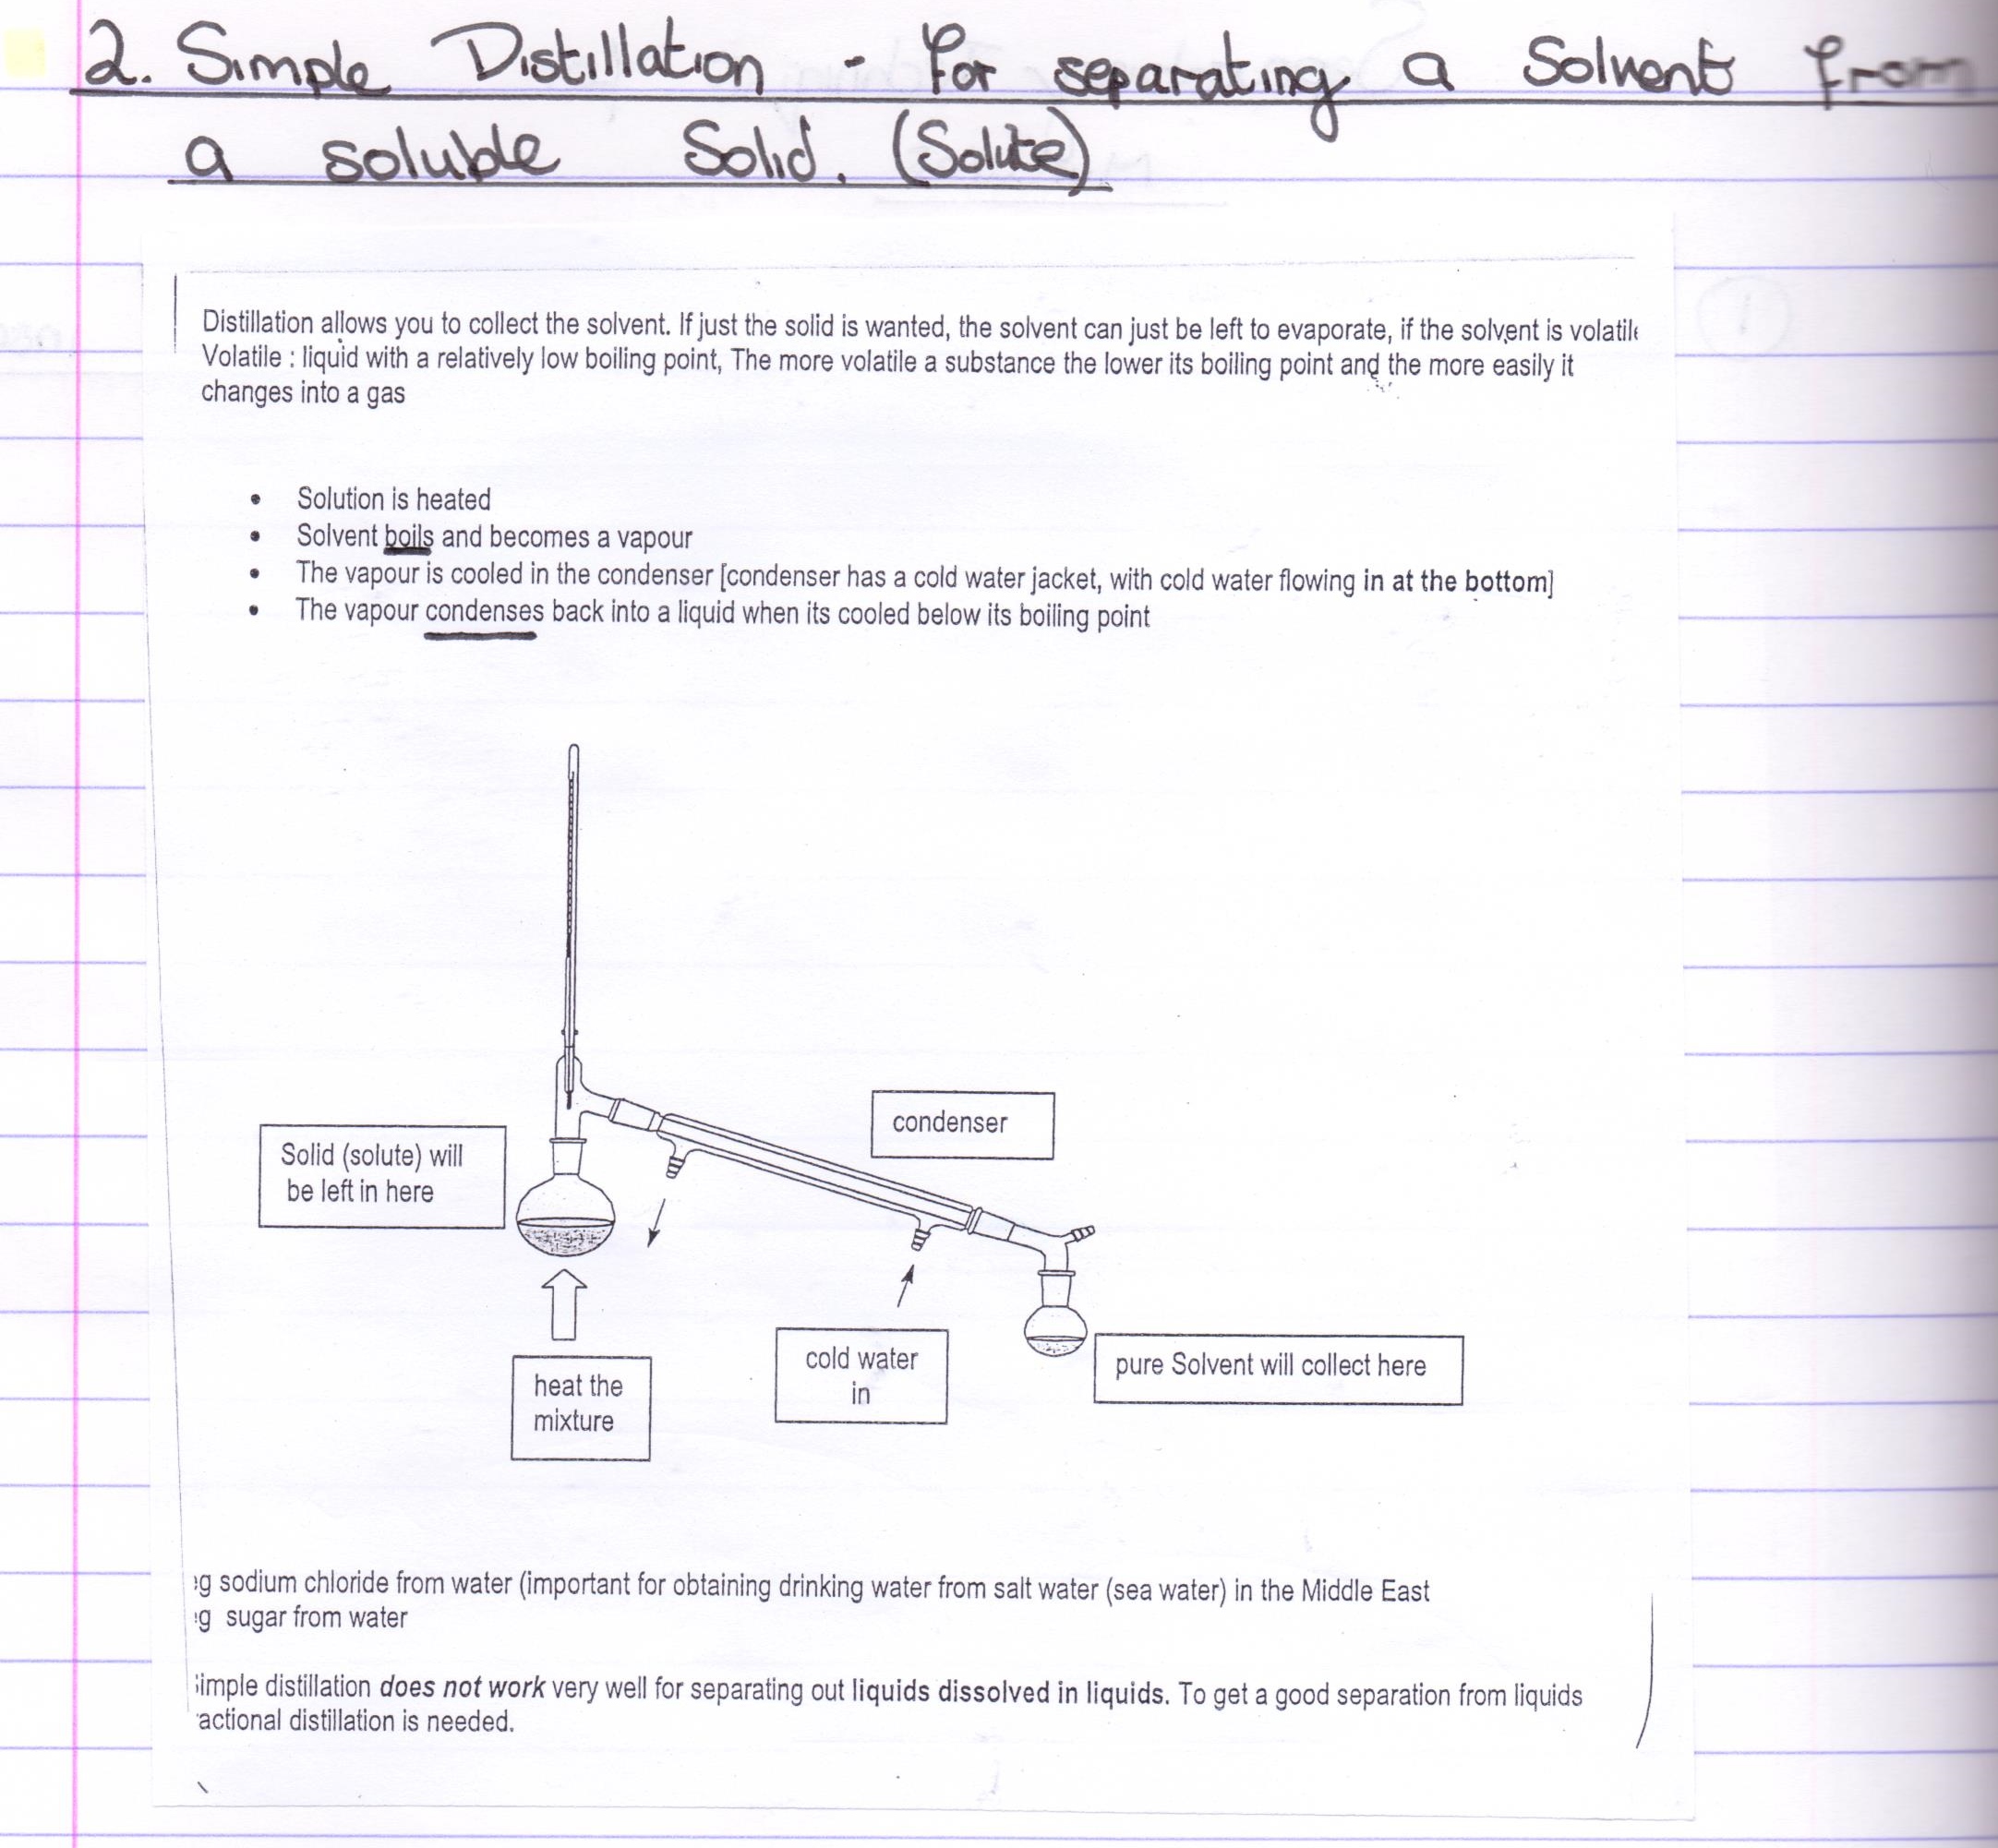 2. Simple Distillation - For separating a Solvent from
a soluble Solid. (Solute)
Distillation allows you to collect the solvent. If just the solid is wanted, the solvent can just be left to evaporate, if the solvent is volatile
Volatile : liquid with a relatively low boiling point, The more volatile a substance the lower its boiling point and the more easily it
changes into a gas
• Solution is heated
• Solvent boils and becomes a vapour
• The vapour is cooled in the condenser [condenser has a cold water jacket, with cold water flowing in at the bottom]
• The vapour condenses back into a liquid when its cooled below its boiling point
condenser
Solid (solute) will
be left in here
cold water
in
pure Solvent will collect here
heat the
mixture
g sodium chloride from water (important for obtaining drinking water from salt water (sea water) in the Middle East
g sugar from water
imple distillation does not work very well for separating out liquids dissolved in liquids. To get a good separation from liquids
actional distillation is needed.